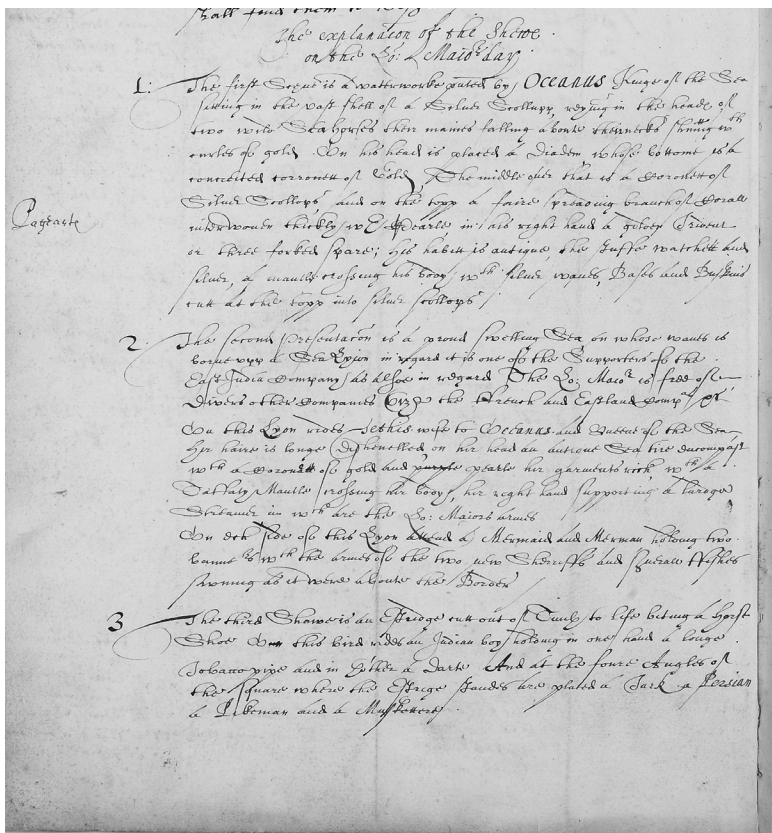 shall find them to
The explanation of the Shewe
on the Lo: Maiors day
1: The first Scene is a watterworke prnted by Oceanus Kinge of the Sea
sitting in the vast shell of a Silver Scollupp, reyning in the heads of
two wild Sea horses their maines falling aboute their necks shining wth
curles of gold On his head is placed a Diadem whose bottome is a
conceited corronett of Gold, The middle over that is a Coronett of
Silver Scollops, and on the topp a faire spreading branch of Corall
Pageante
interwoven thickly wth Pearle in his right hand a golden Trident
or three forked speare; his habitt is antique, the stuffe watchett and
silver, a mantle crossing his body wth silver waves, Bases and Buskins
cutt at the topp into silver scollops
2 The second presentacon is a proud swelling Sea on whose waves is
borne upp a Sea Lyon in regard it is one of the Supporters of the
East India Company as alsoe in regard The Lo: Maior is free of
Divers other Companies (viz) the French and Eastland Compa: &c
On this Lyon rides Tethis wife to Oceanus and Queene of the Sea
Her haire is longe Dishevelled on her head an antique Sea tire encompast
wth a Coronett of gold and pearle her garments rich wth a
Taffaty Mantle crossing her body, her right hand supporting a large
Streamer in wch are the Lo: Maiors armes
On ech side of this Lyon attend a Mermaid and Merman holding two
banners wth the armes of the two new Sherriffs and severall ffishes
swiming as it were aboute the Border
3 The third Showe is an Estridge cutt out of Timber to life biting a Horse
Shoe On this bird rides an Indian boy holding in one hand a longe
Tobaccopipe and in th'other a darte And at the foure Angles of
the square where the Estrige standes are placed a Turk a Persian
a Pikeman and a Muskettere